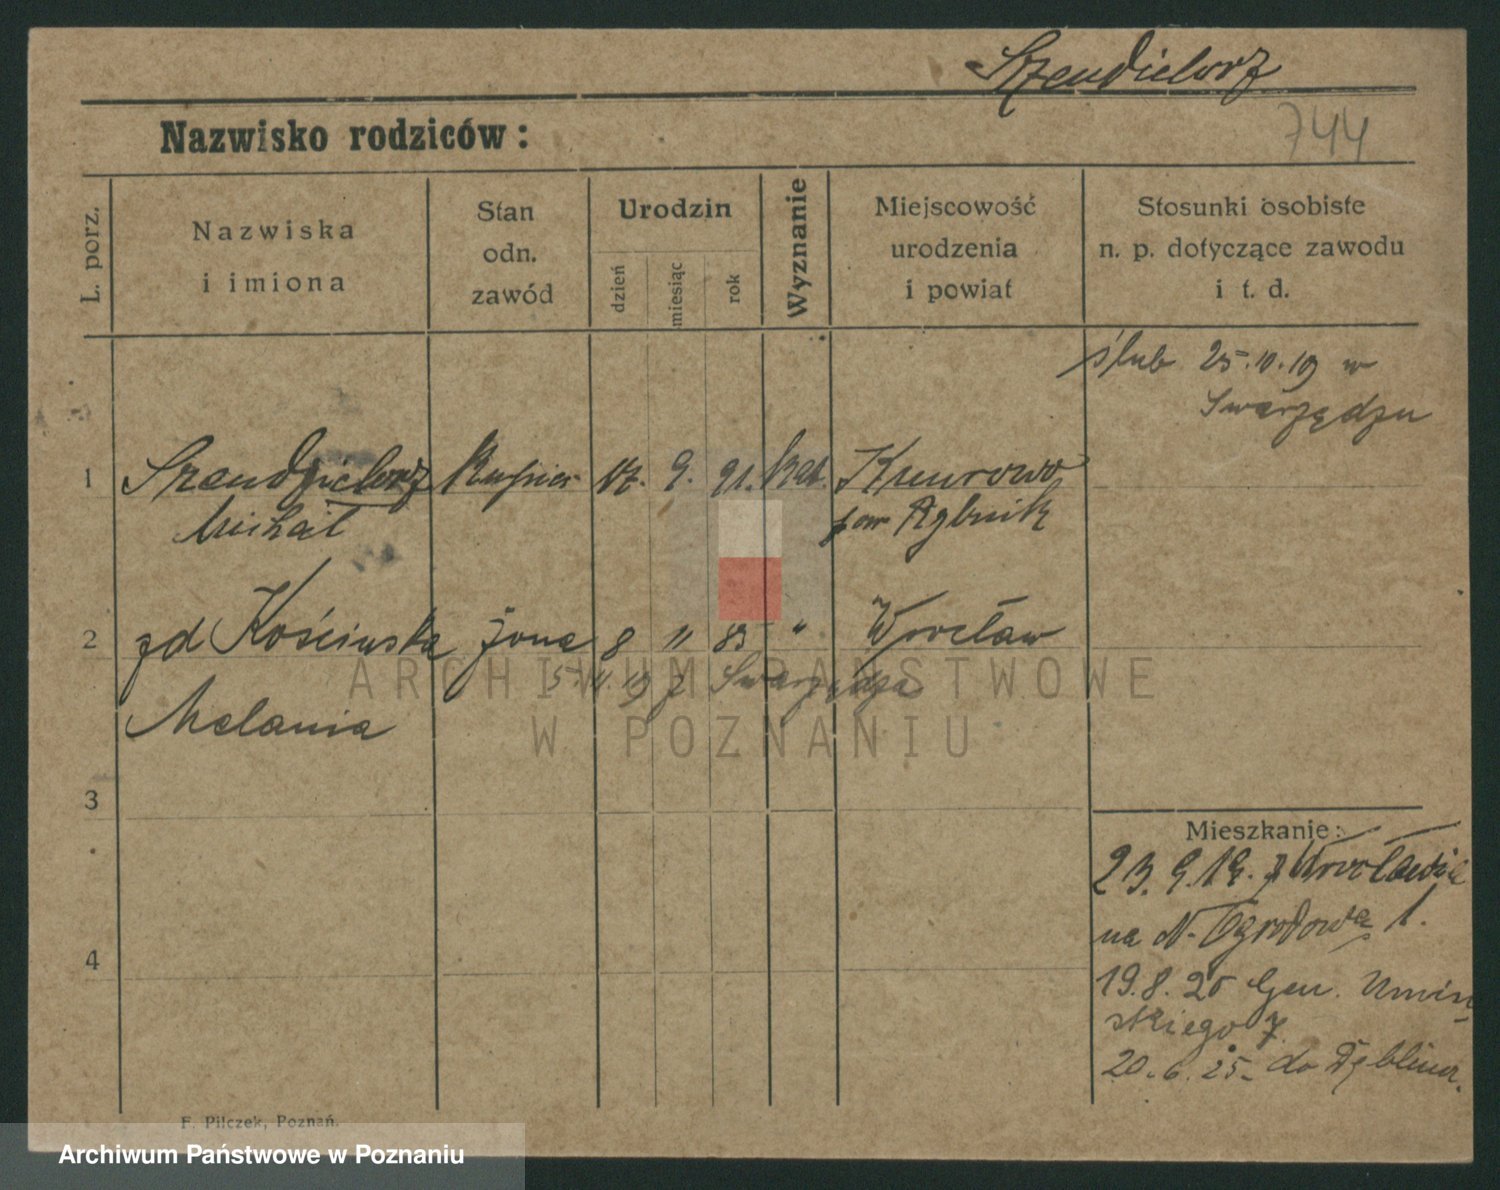 Szendielorz
744
Nazwisko rodziców:
L. porz.
Nazwiska
i imiona
Stan
odn.
zawód
Urodzin
dzień
miesiąc
rok
Wyznanie
Miejscowość
urodzenia
i powiat
Stosunki osobiste
n. p. dotyczące zawodu
i t. d.
ślub 25.10.19 w
Swarzędzu
1 Szendzielorz 17. 9. 91. Kat. Knurowo
Michał pow Rybnik
2 zd Kościuska żona 8 11 83 " Wrocław
5. 11. 19 z Swarzędza
Melania
3
4
Mieszkanie:
23. 9. 19. z Wrocławia
na N. Ogrodową 1.
19. 8. 20 Gen. Umiń
skiego 7.
20. 6. 25. do Dęblina.
F. Pilczek, Poznań.
ARCHIWUM PAŃSTWOWE
W POZNANIU
Archiwum Państwowe w Poznaniu